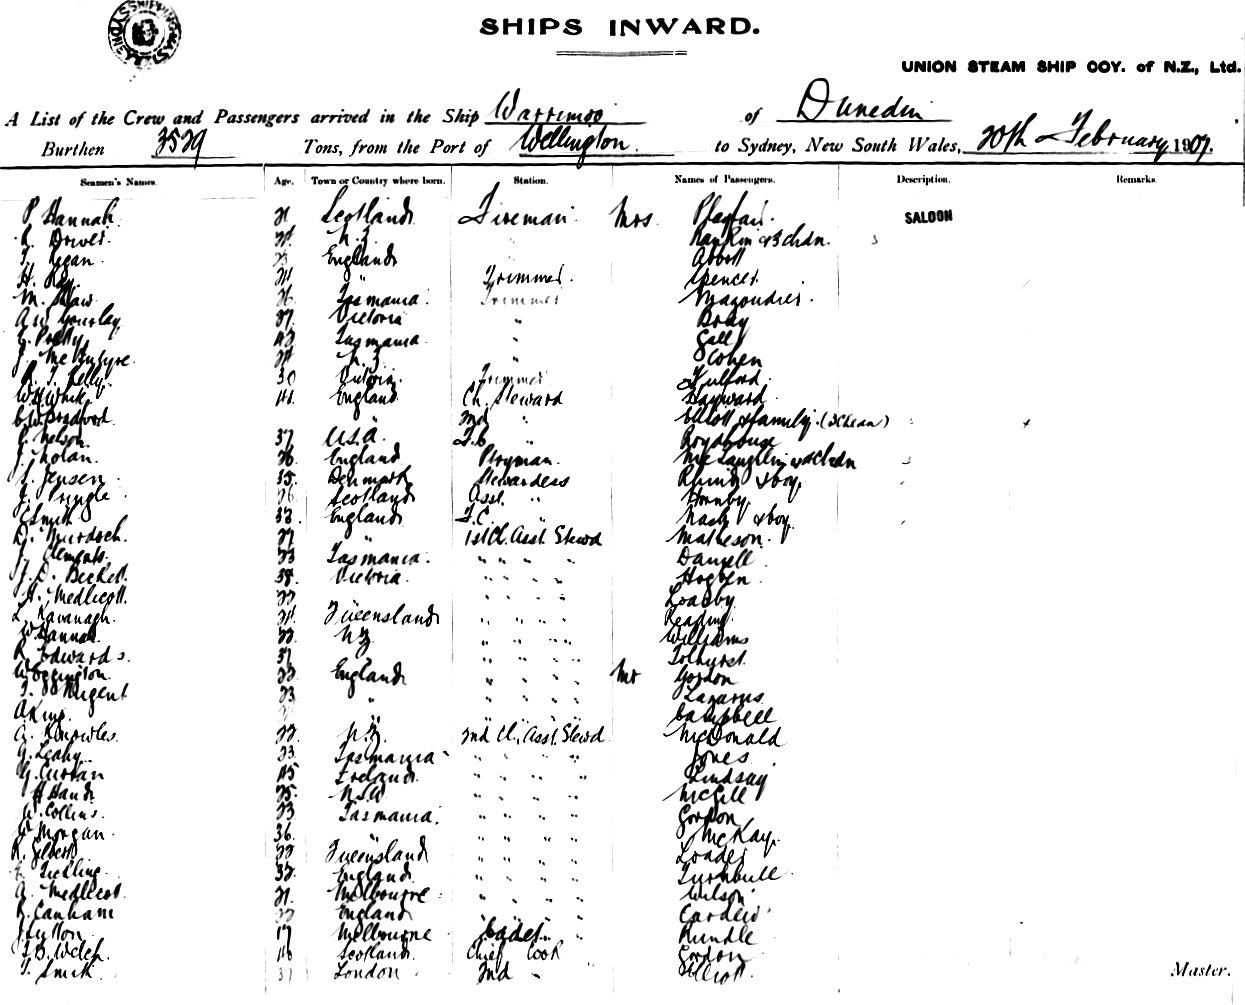 SHIPS INWARD.
UNION STEAM SHIP COY. of N.Z., Ltd.
A List of the Crew and Passengers arrived in the Ship Warrimoo of Dunedin
Burthen 3529 Tons, from the Port of Wellington. to Sydney, New South Wales, 20th February 1907.
Seamen's Names. Age. Town or Country where born. Station. Names of Passengers. Description. Remarks.
P Hannah. 21 Scotland Fireman Mrs. Playfair. SALOON
24 N.Z. Rankin & 3 chdn.
Regan 23 England Abbott
H. 24 " Trimmer. Spencer
M. Shaw 26 Tasmania. Trimmer
A.W. Gourlay 27 Victoria " Bray
42 Tasmania " Gall
J. McIntyre 24 N.Z. " Cohen
R. J. Kelly 30 Victoria. Trimmer Fulford
W.H. White 41 England Ch. Steward Hayward
" 2nd " Elliott & family. (3 Chean)
Nelson 37 U.S.A. F.C. " Roydhouse
J. Nolan. 26 England Ptryman. McLaughlin & 2 Chdn
Jensen 35. Denmark Stewardess & boy
Pringle 26 Scotland Asst. " Hornby
Smith 32 England F.C. " Nash & boy
D. Murdoch. 27 " 1st Cl. Asst Stewd Matheson.
J. Clements 23 Tasmania. " " " " Daniell
J. D. Beckett. 38. Victoria. " " " " Hogben
H. Medlicott. 22 " " " " Loasby
L. Kavanagh. 24 Queensland " " " " Reading
W. Hannah 22 N.Z. " " " " Williams
R. Edwards 37 " " " " " Tolhurst.
W. Oggington 22 England " " " " Mr Gordon
Nugent 23 " " " " " Lazarus
A King. " " " " Campbell
A. Knowles. 22. N.Z. 2nd Cl. Asst. Stewd. McDonald
G. Leahy 23 Tasmania " " " " Jones
G. Curran 45 Ireland " " " " Lindsay
H Hand 25 N.S.W " " " " McGill
W. Collins. 23 Tasmania. " " " " Gordon
W. Morgan 36. " " " " " McKay.
R. Gilbert 22 Queensland " " " " Loader
Tickling 32. England " " " " Turnbull
A. Medlicot. 21. Melbourne " " " " Wilson
R. Canham 22 England " " " " Cardew
J. Sutton. 17 Melbourne Cadet " " Rundle
J. B. Welch 46 Scotland. Chief Cook Gordon
T. Smith 37 London 2nd " Elliott.
Master.